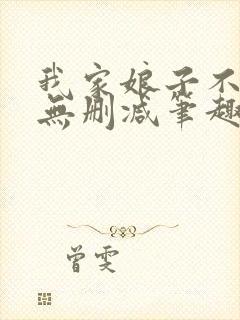 我家娘子不
無刪減筆趣
曾雯